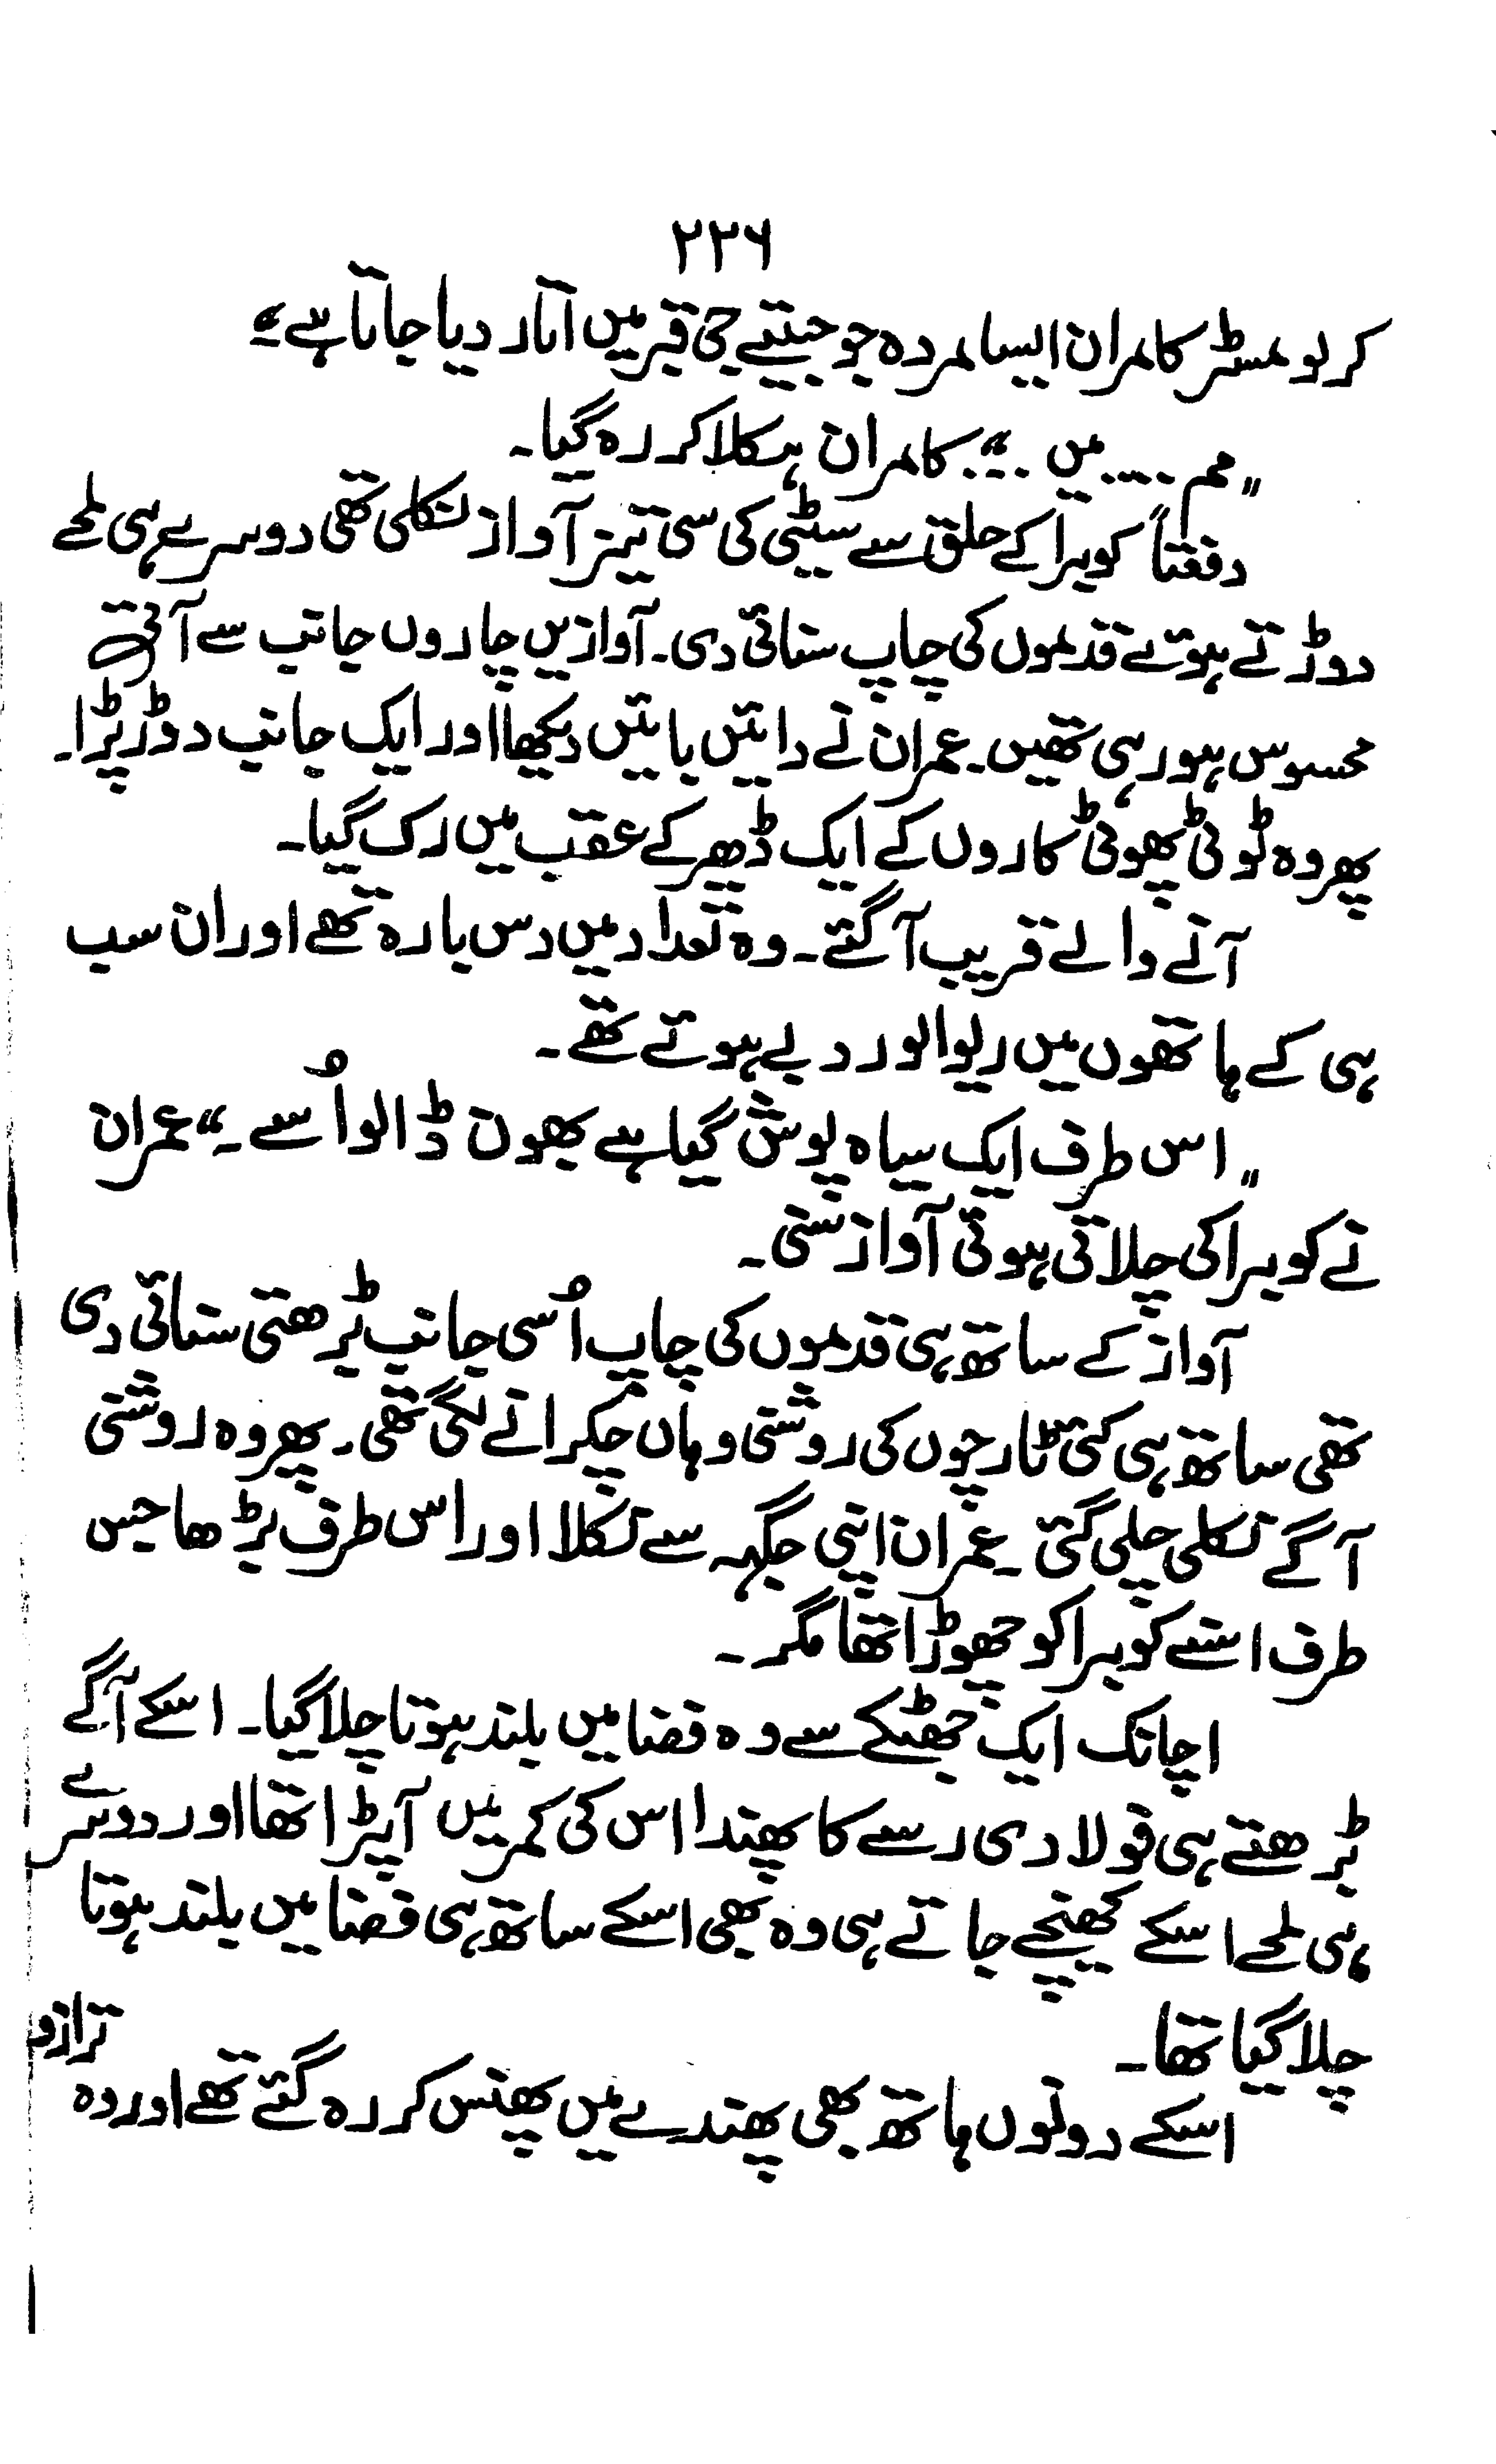 ۲۳۶
کر لو مسٹر کامران ایسا مردہ جو جیتے جی قبر میں اتار دیا جاتا ہے۔“
”مم .... میں ...“ کامران ہکلا کر رہ گیا۔
دفعتاً کوبرا کے حلق سے سیٹی کی سی تیز آواز نکلی تھی دوسرے ہی لمحے
دوڑتے ہوئے قدموں کی چاپ سنائی دی۔ آوازیں چاروں جانب سے آتی
محسوس ہو رہی تھیں۔ عمران نے دائیں بائیں دیکھا اور ایک جانب دوڑ پڑا۔
پھر وہ ٹوٹی پھوٹی کاروں کے ایک ڈھیر کے عقب میں رک گیا۔
آنے والے قریب آ گئے۔ وہ تعداد میں دس بارہ تھے اور ان سب
ہی کے ہاتھوں میں ریوالور دبے ہوئے تھے۔
”اس طرف ایک سیاہ پوش گیا ہے بھون ڈالو اُسے۔“ عمران
نے کوبرا کی چلاتی ہوئی آواز سنی۔
آواز کے ساتھ ہی قدموں کی چاپ اُسی جانب بڑھتی سنائی دی
تھی ساتھ ہی کئی ٹارچوں کی روشنی وہاں چکرانے لگی تھی۔ پھر وہ روشنی
آگے نکلی چلی گئی۔ عمران اپنی جگہ سے نکلا اور اس طرف بڑھا جس
طرف اسنے کوبرا کو چھوڑا تھا مگر۔
اچانک ایک جھٹکے سے وہ فضا میں بلند ہوتا چلا گیا۔ اسکے آگے
بڑھتے ہی فولادی رسے کا پھندا اس کی کمر میں آپڑا تھا اور دوسرے
ہی لمحے اسکے کھینچے جاتے ہی وہ بھی اسکے ساتھ ہی فضا میں بلند ہوتا
چلا گیا تھا۔
اسکے دونوں ہاتھ بھی پھندے میں پھنس کر رہ گئے تھے اور وہ ترازو